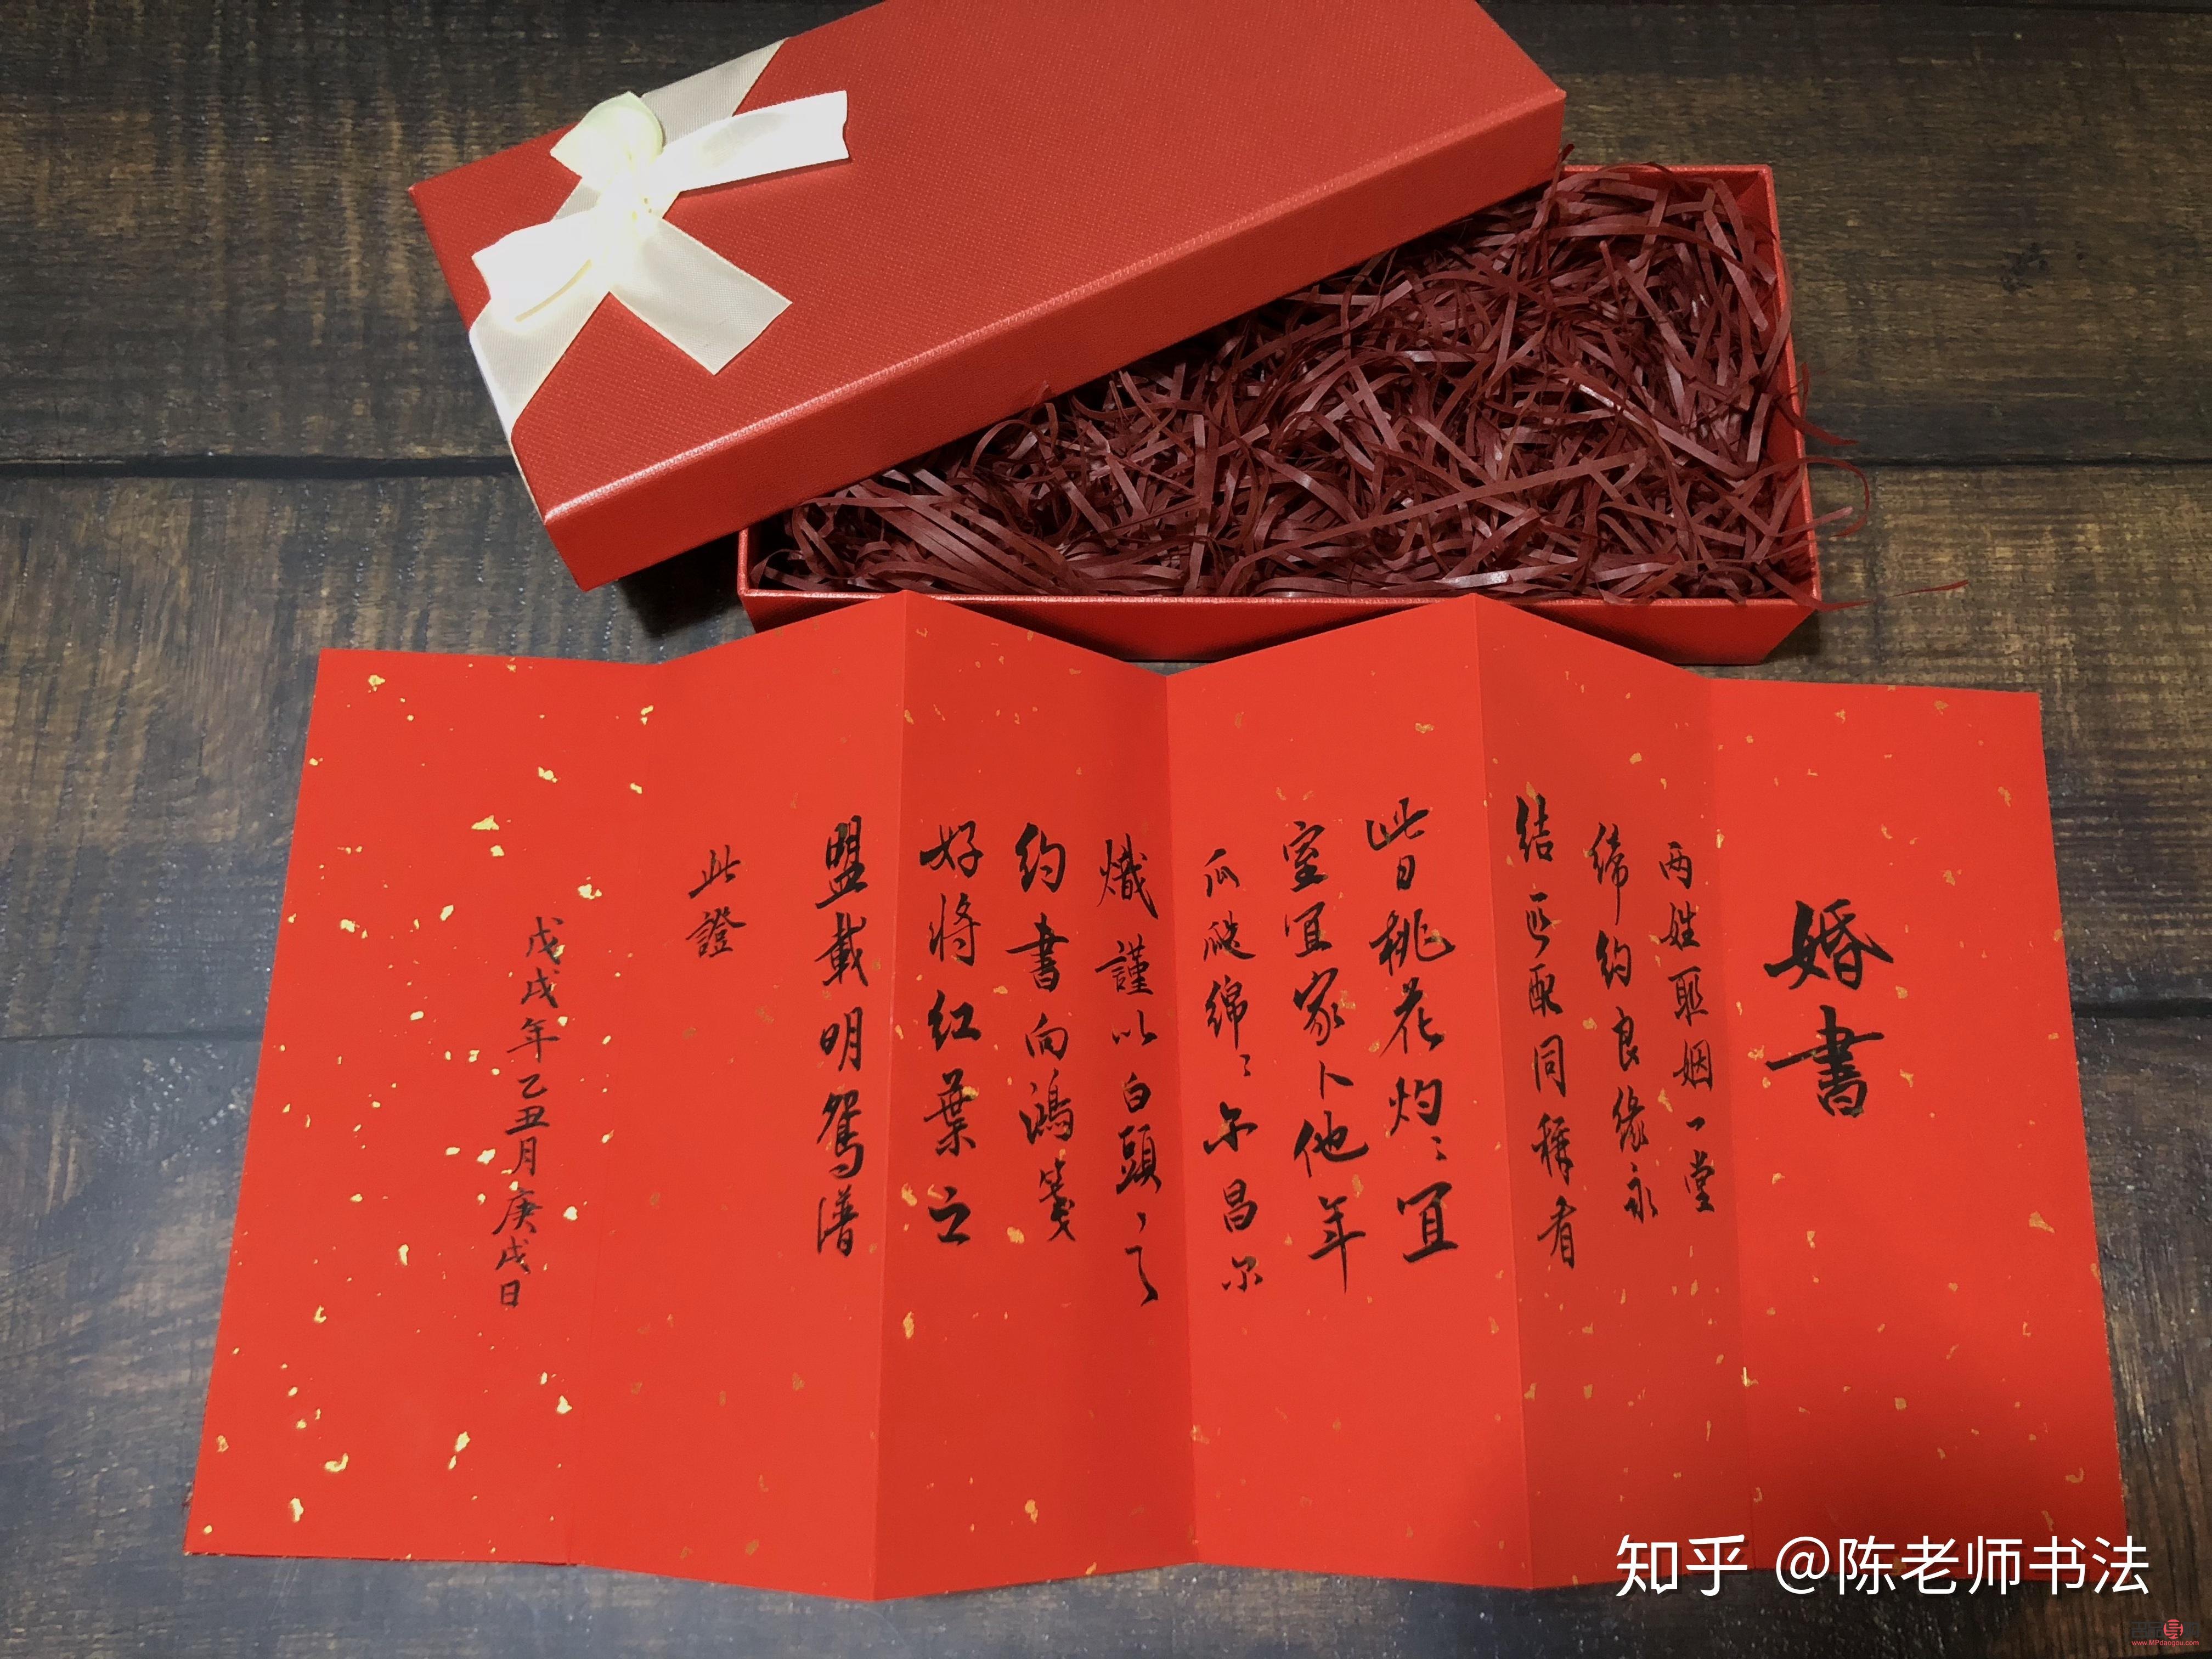 婚書
两姓联姻一堂
缔约良缘永
结匹配同称看
此日桃花灼〻宜
室宜家卜他年
瓜瓞绵〻尔昌尔
熾謹以白頭之
约書向鴻箋
好将红葉之
盟載明鸳谱
此證
戊戌年乙丑月庚戌日
知乎 @陈老师书法
www.MPdaogou.com